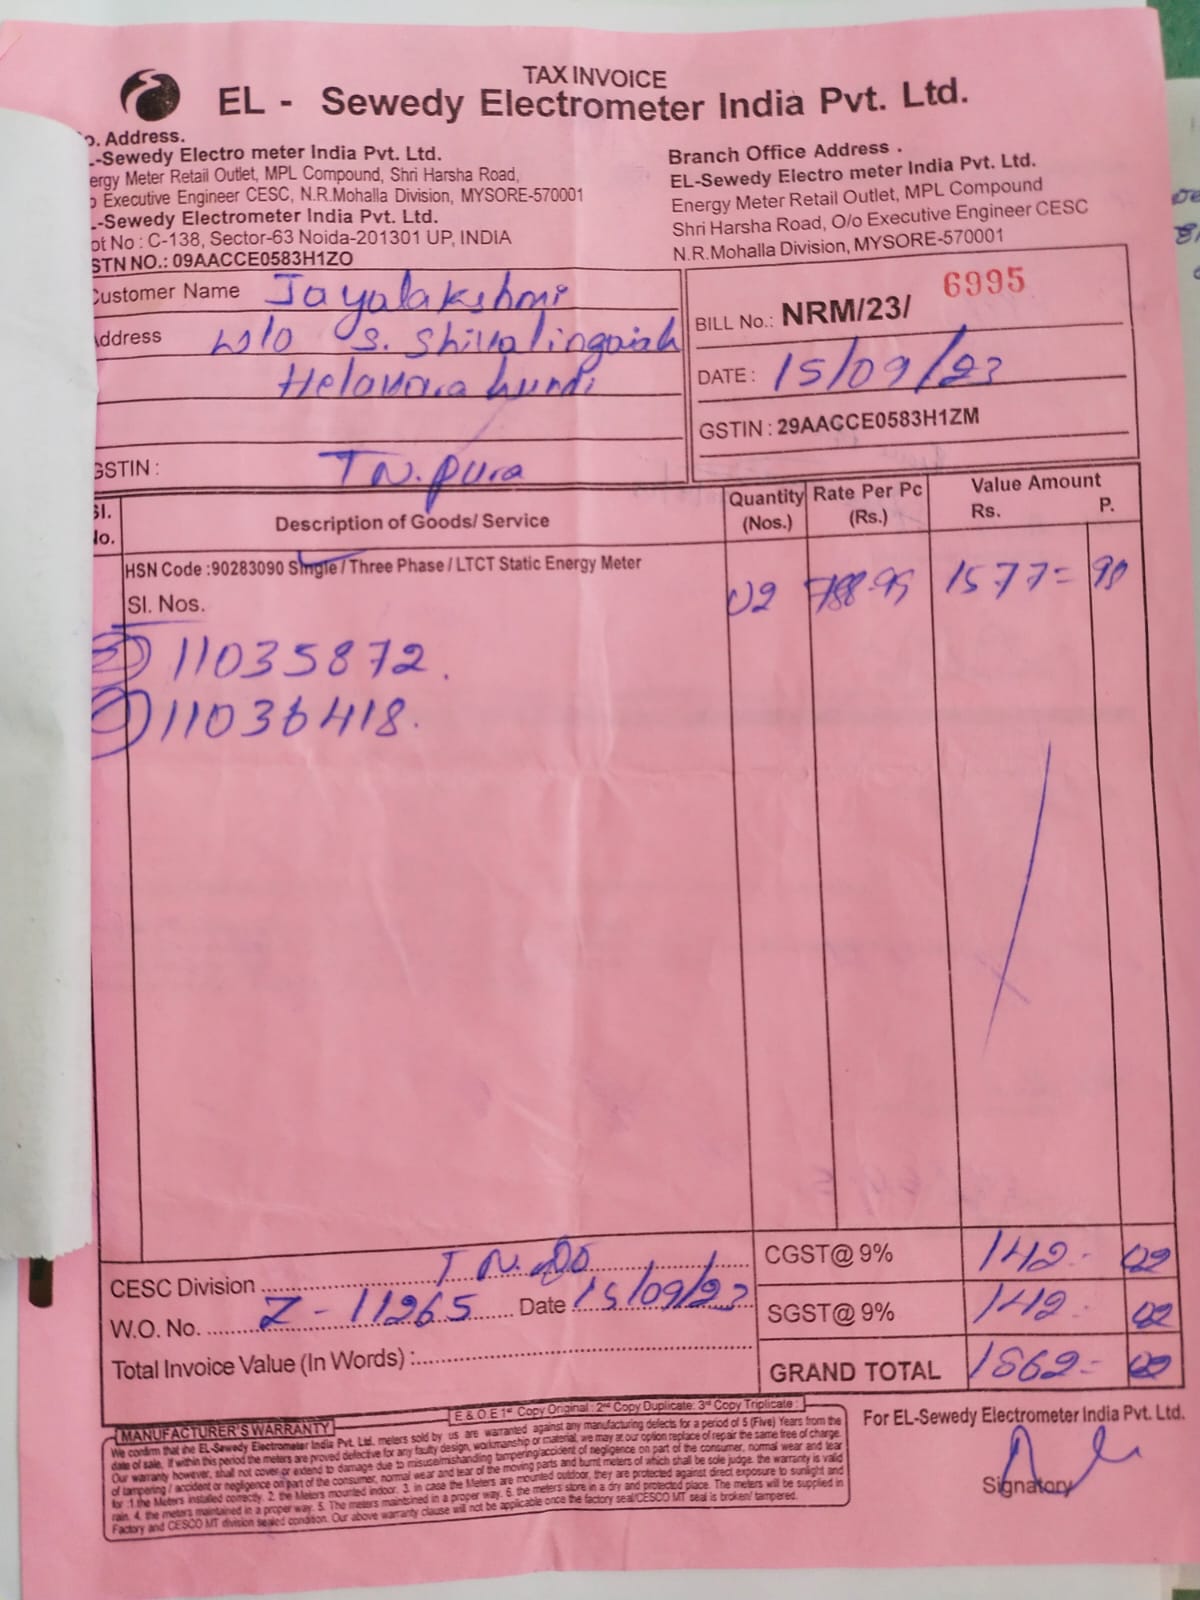 TAX INVOICE
EL - Sewedy Electrometer India Pvt. Ltd.
o. Address.
-Sewedy Electro meter India Pvt. Ltd.
ergy Meter Retail Outlet, MPL Compound, Shri Harsha Road,
o Executive Engineer CESC, N.R.Mohalla Division, MYSORE-570001
-Sewedy Electrometer India Pvt. Ltd.
ot No : C-138, Sector-63 Noida-201301 UP, INDIA
STN NO.: 09AACCE0583H1ZO
Branch Office Address .
EL-Sewedy Electro meter India Pvt. Ltd.
Energy Meter Retail Outlet, MPL Compound
Shri Harsha Road, O/o Executive Engineer CESC
N.R.Mohalla Division, MYSORE-570001
Customer Name Jayalakshmi
Address W/o S. Shivalingaiah
Helavarahundi
GSTIN : T N. pura
BILL No.: NRM/23/ 6995
DATE : 15/09/23
GSTIN : 29AACCE0583H1ZM
Sl. No. Description of Goods/ Service Quantity (Nos.) Rate Per Pc (Rs.) Value Amount Rs. P.
HSN Code :90283090 Single / Three Phase / LTCT Static Energy Meter 02 788.95 1577= 90
Sl. Nos.
11035872.
11036418.
CESC Division T N.
W.O. No. Z - 11265 Date 15/09/23
Total Invoice Value (In Words) :
CGST@ 9% 142 - 02
SGST@ 9% 142 - 02
GRAND TOTAL 1862= 00
E & O.E 1st Copy Original : 2nd Copy Duplicate: 3rd Copy Triplicate :
MANUFACTURER'S WARRANTY
We confirm that the EL-Sewedy Electrometer India Pvt. Ltd. meters sold by us are warranted against any manufacturing defects for a period of 5 (Five) Years from the
date of sale. If within this period the meters are proved defective for any faulty design, workmanship or material, we may at our option replace of repair the same free of charge.
Our warranty however, shall not cover or extend to damage due to misuse/mishandling tampering/accident of negligence on part of the consumer, normal wear and tear
of tampering / accident or negligence on part of the consumer, normal wear and tear of the moving parts and burnt meters of which shall be sole judge. the warranty is valid
for :1.the Meters installed correctly. 2. the Meters mounted indoor. 3. in case the Meters are mounted outdoor, they are protected against direct exposure to sunlight and
rain. 4. the meters maintained in a proper way. 5. The meters maintained in a proper way. 6. the meters store in a dry and protected place. The meters will be supplied in
Factory and CESCO MT division sealed condition. Our above warranty clause will not be applicable once the factory seal/CESCO MT seal is broken/ tampered.
For EL-Sewedy Electrometer India Pvt. Ltd.
Signatory